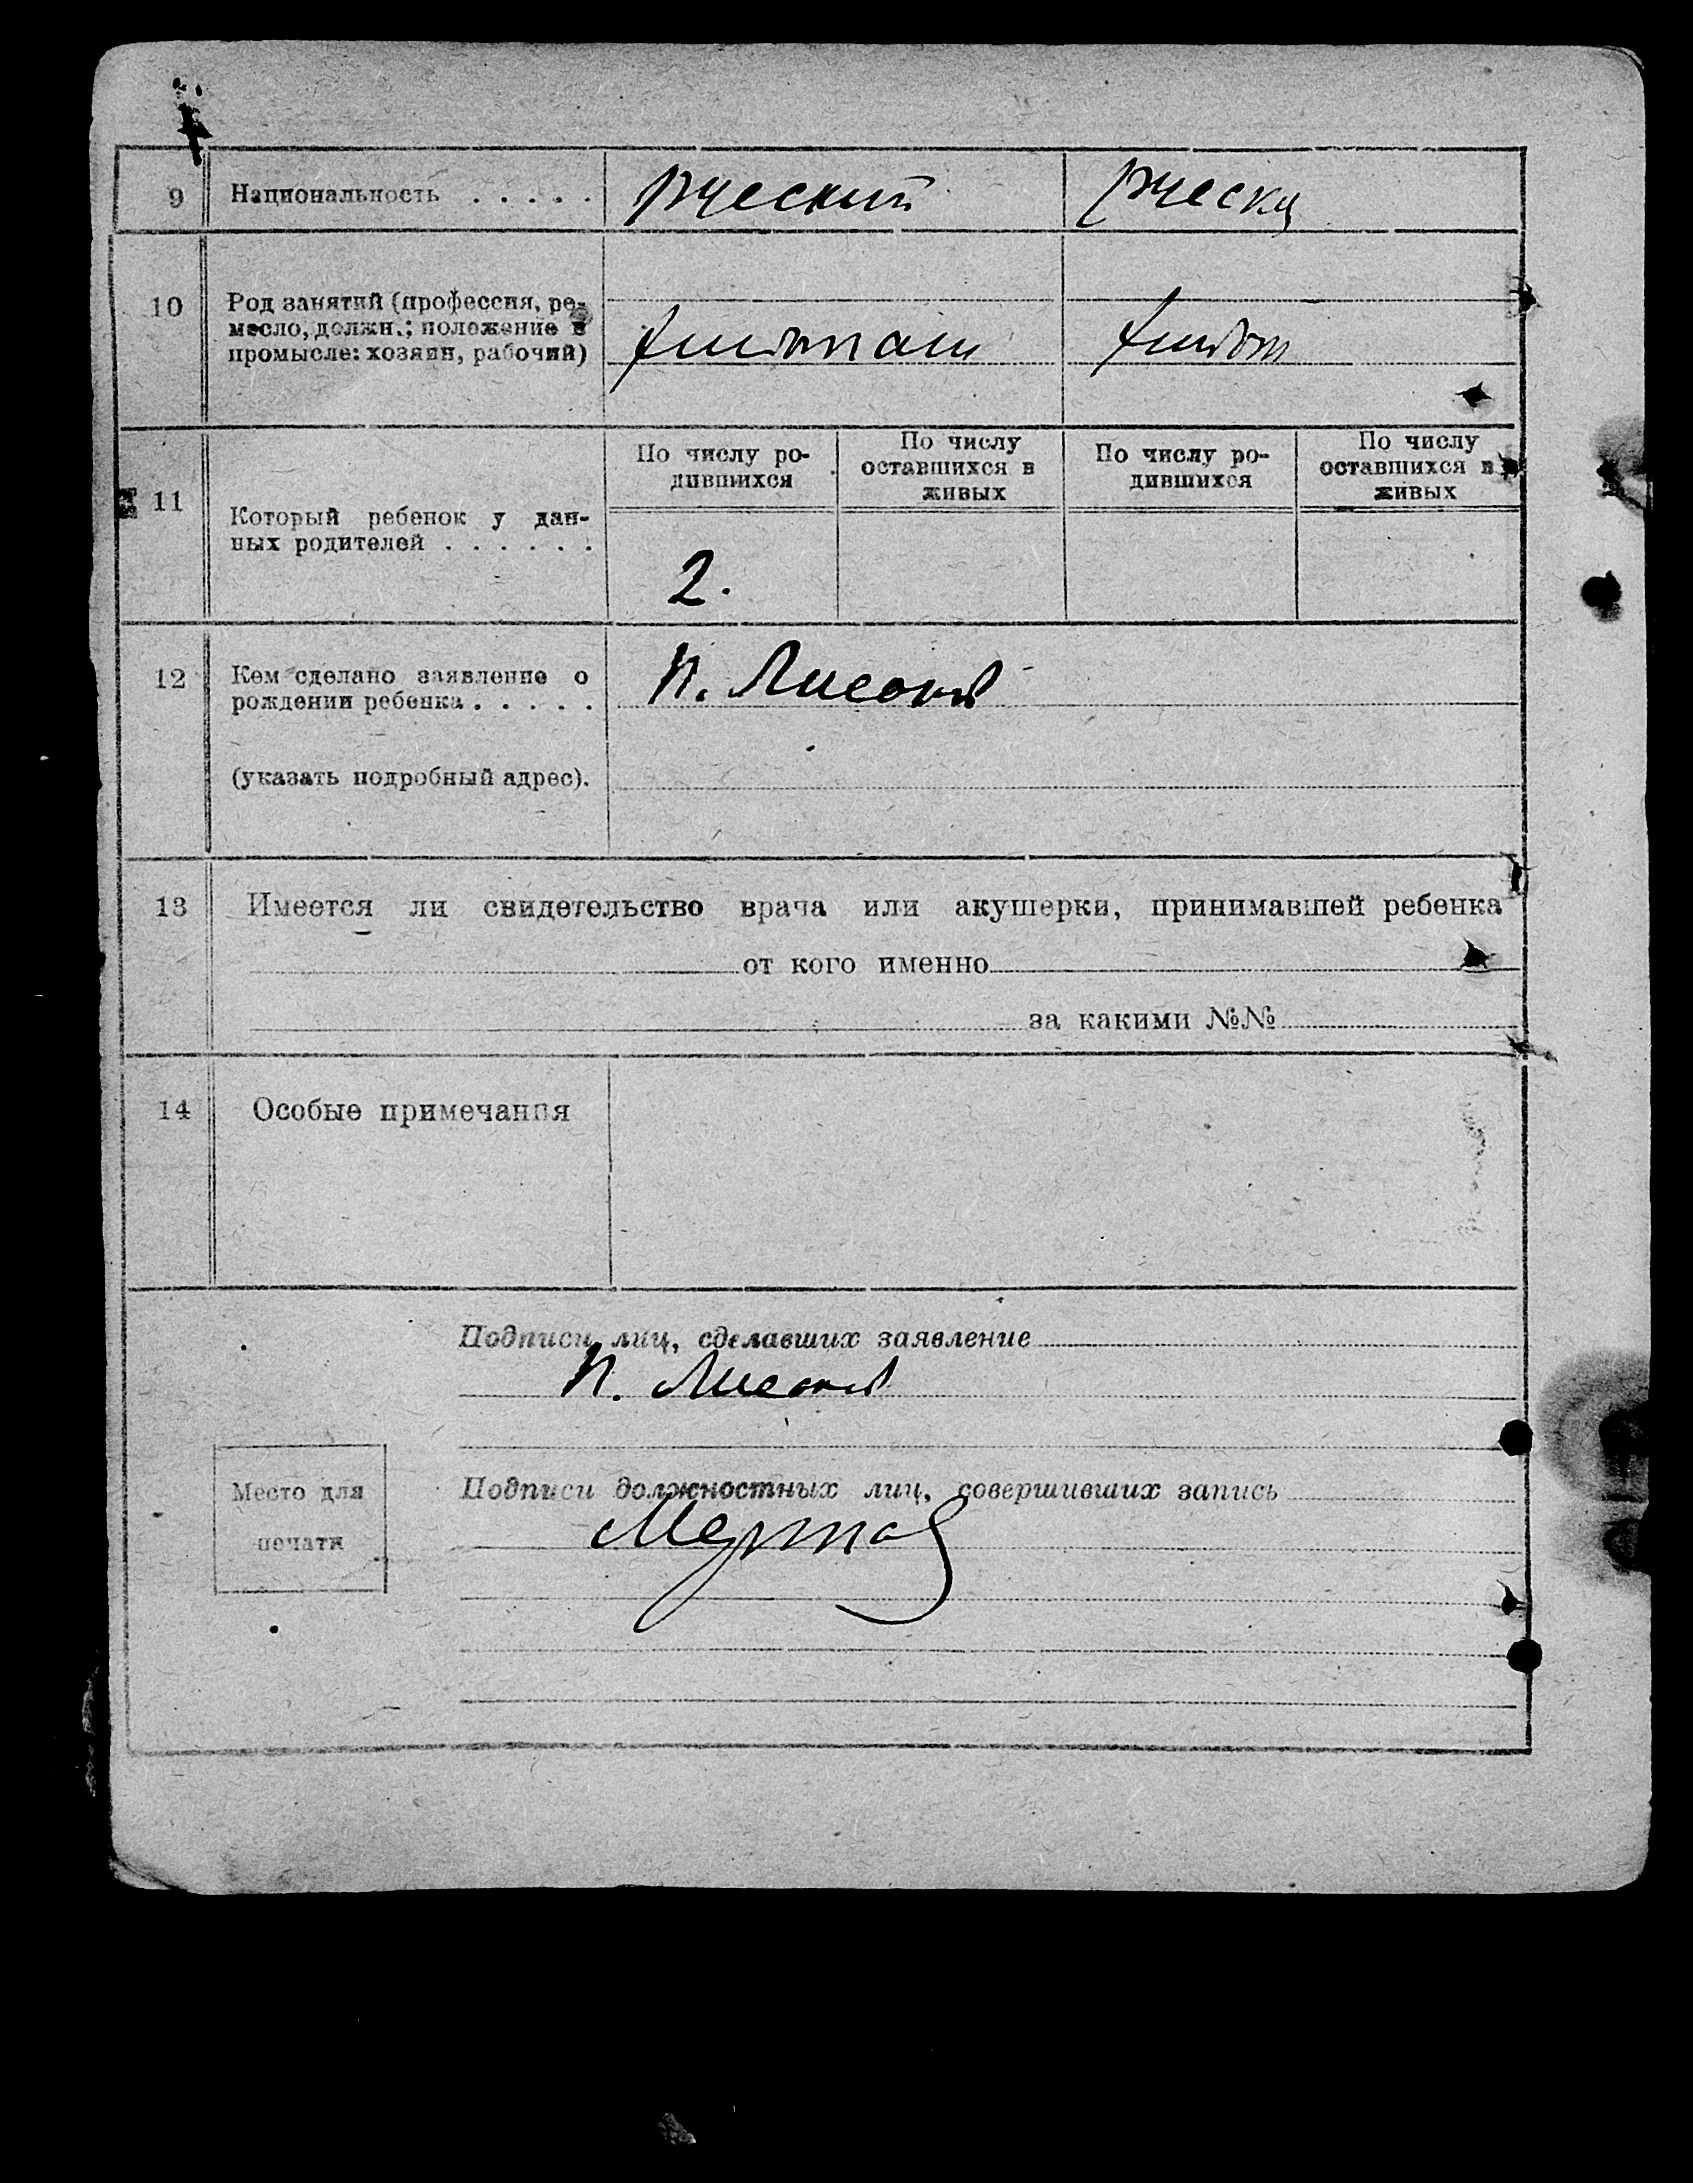 9 Национальность русский руска
10 Род занятий (профессия, ре-
месло, должн.; положение в
промысле: хозяин, рабочий)
11 Который ребенок у дан-
ных родителей
По числу ро-
дившихся
По числу
оставшихся в
живых
По числу ро-
дившихся
По числу
оставшихся в
живых
2.
12 Кем сделано заявление о
рождении ребенка
(указать подробный адрес).
П.
13 Имеется ли свидетельство врача или акушерки, принимавшей ребенка
от кого именно
за какими №№
14 Особые примечания
Подписи лиц, сделавших заявление
П.
Место для
печати
Подписи должностных лиц, совершивших запись